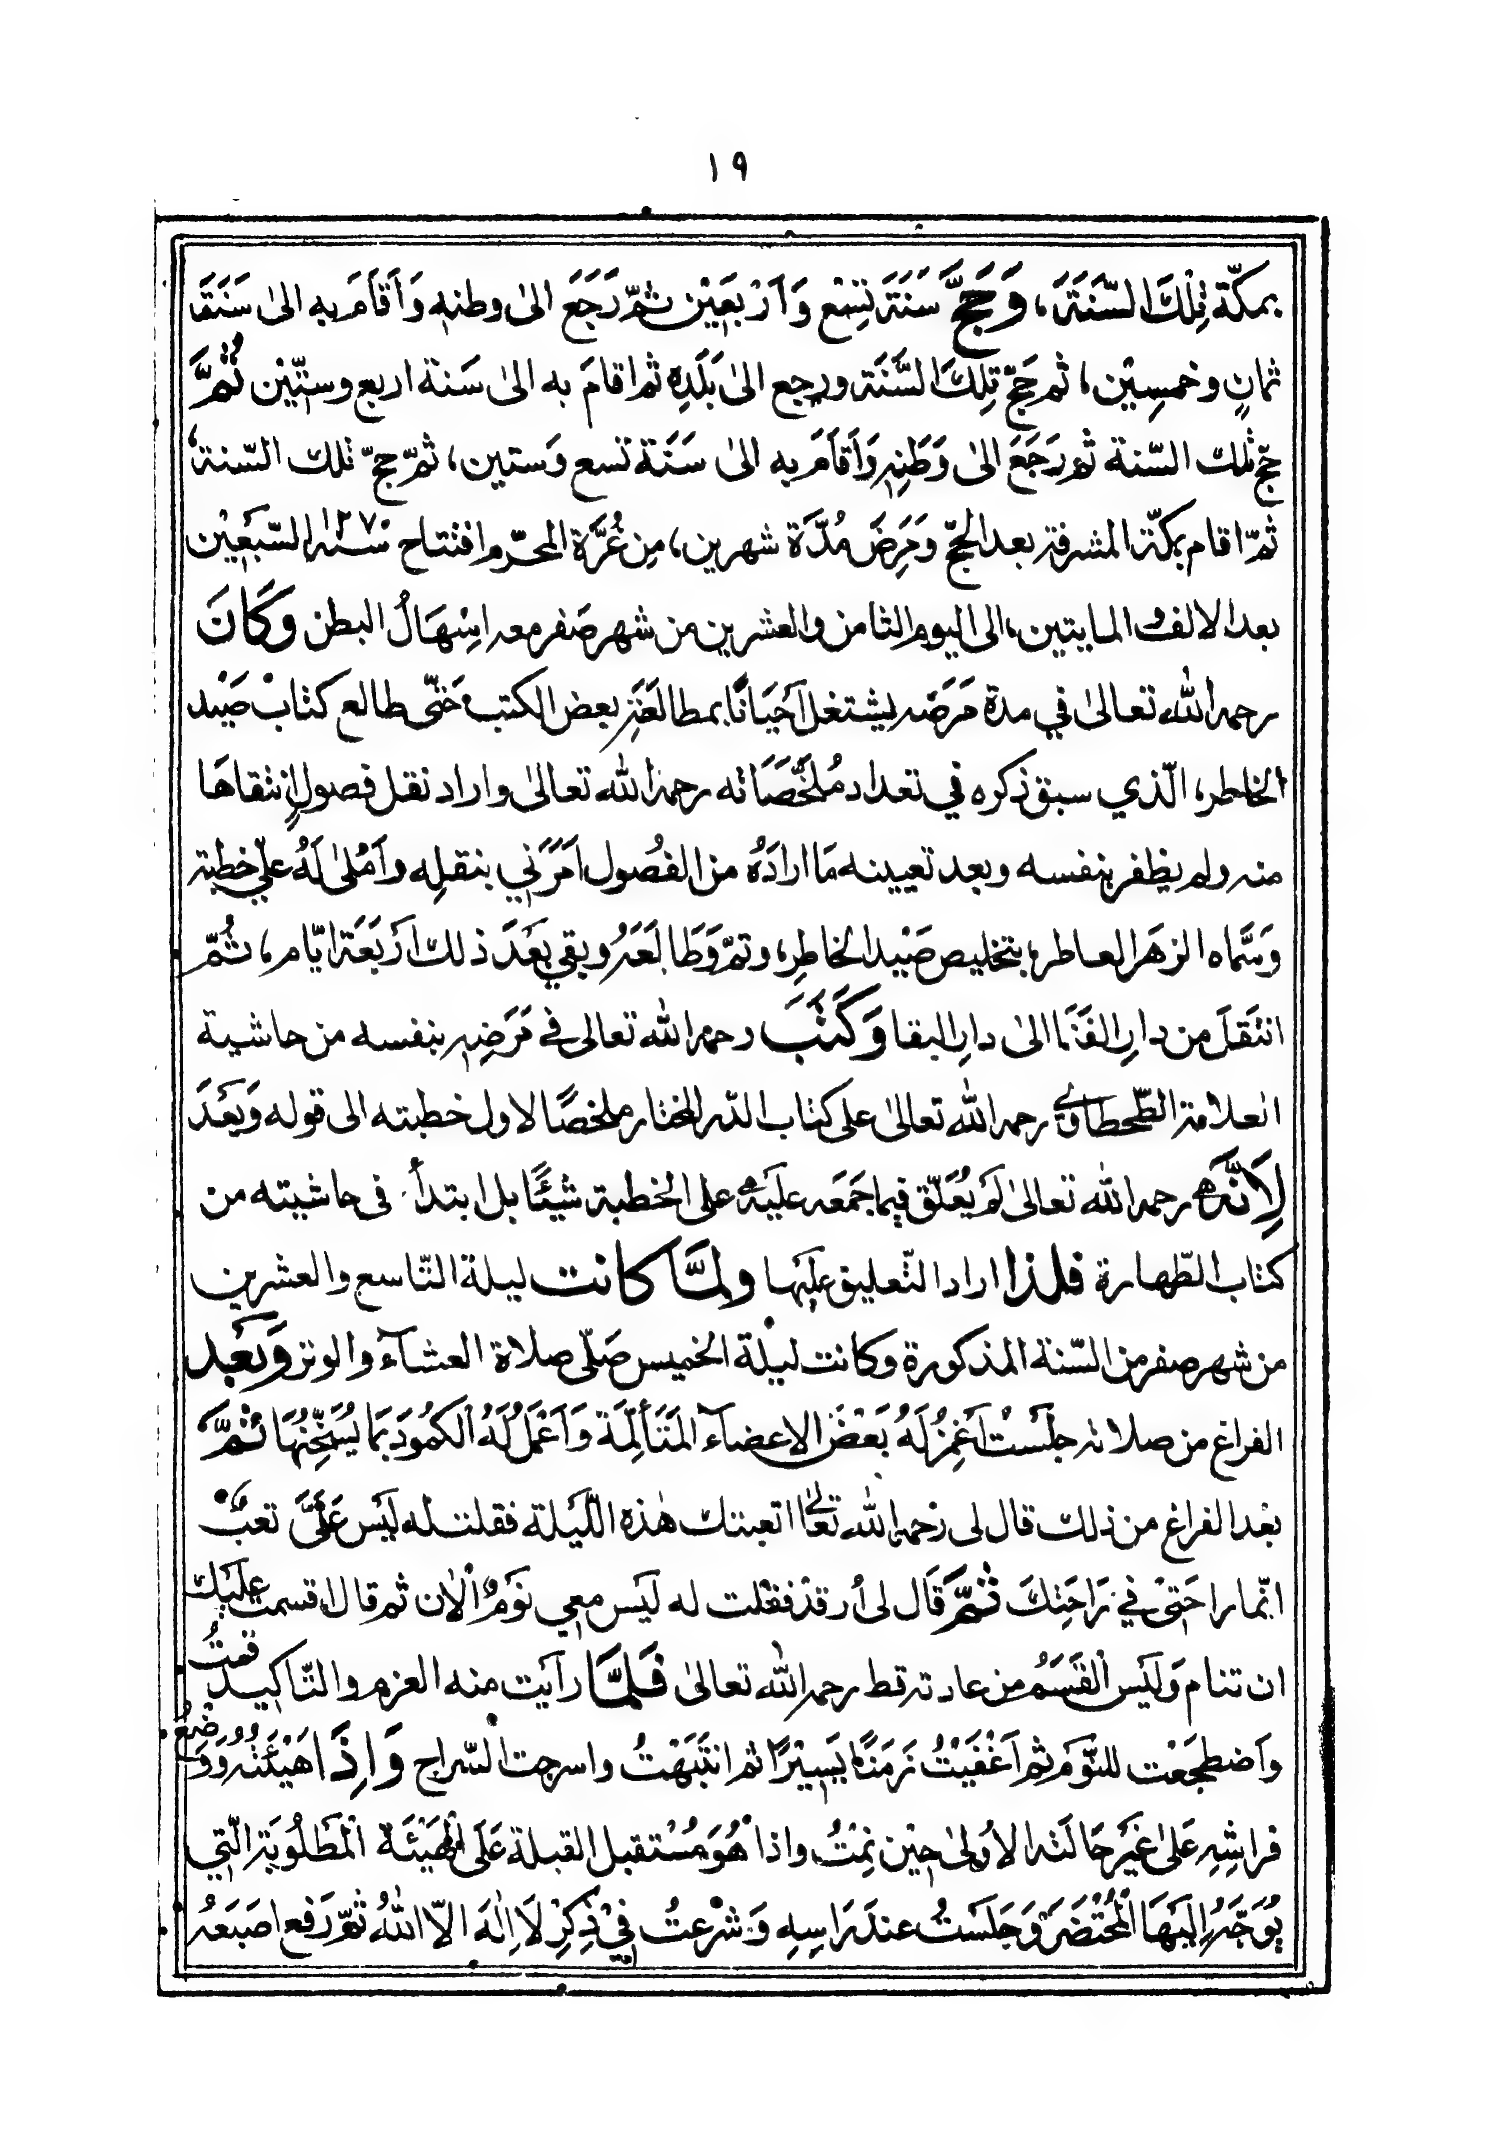 ١٩
بمكّة تِلْكَ السَّنَةَ، وَحَجَّ سَنَةَ تِسْعٍ وَأَرْبَعِيْن ثمّ رَجَعَ الىٰ وطنِهٖ وَأَقَامَ بِهِ الىٰ سَنَةَ
ثمانٍ وخمسِيْن، ثُم حَجّ تِلكَ السَّنَة ورجع الىٰ بَلَدِهِ ثم اقامَ به الىٰ سَنة اربع وستّيْن ثُمَّ
حجّ تلك السّنة ثم رَجَعَ الىٰ وَطَنِهٖ وَأَقَامَ بِهِ الىٰ سَنَة تسع وَستين، ثُمّ حجّ تلك السّنة،
ثمّ اقام بمكّة المشرفة بعد الحجّ وَمَرِضَ مُدَّة شهرين، مِن غُرَّة المحرّم افتتاح سنة ١٢٧٠ السّبْعِيْن
بعد الالف والمايتين، الى اليوم الثامن والعشرين من شهر صَفر معه اِسْهَالُ البطن وَكَانَ
رحمه الله تعالىٰ في مدة مَرَضه يشتغل أَحْيَانًا بمطالَعَة بعض الكتب حَتّى طالع كتابْ صَيْد
الخاطر، الّذي سبق ذكره في تعداد مُلَخَّصَاته رحمه الله تعالىٰ واراد نقل فصولٍ انتقاهَا
منه ولم يظفر بنفسه وبعد تعيينه مَا ارادَهُ من الفُصول اَمَرَني بنقلِه وأَمْلىٰ لَهُ عليّ خطبته
وَسَمَّاه الزهَر العاطر، بتخليص صَيْد الخاطِرِ، وتمّ وَطَالَعَهُ وبقي بَعْدَ ذلك أَرْبَعَة ايّام، ثُمّ
انتقَلَ من دارِ الفَنَا الىٰ دارِ البقا وَكَتَبَ رحمه الله تعالى في مَرَضِهٖ بنفسه من حاشية
العلامة الطّحطاوي رحمه الله تعالىٰ على كتاب الدّر المختار ملخصًا لاول خطبته الى قوله وَبَعْدَ
لِاَنَّهُ رحمه الله تعالىٰ لم يُعَلّق فيما جَمَعَه عَلَيْهِ على الخطبة شَيْئًا بل ابتدأ في حاشيته من
كتاب الطّهارة فلذا اراد التّعليق عليْها ولمَّا كانت ليلة التّاسع والعشرين
من شهر صفر من السّنة المذكورة وكانت ليْلة الخميس صَلّى صلاة العشآء والوتر وَبَعْد
الفراغ من صلاته جلَسْتُ أَغمِزُ لَهُ بَعْضَ الاعضآء المتَألِّمَة وَأَعْمَلُ لَهُ الكَمُودَ بمَا يُسَخِّنُهَا ثُمَّ
بعْد الفراغ من ذلك قال لى رَحمه الله تعالىٰ اتعبتك هٰذه اللّيلة فقلت له لَيْس عَلَىَّ تعَبٌ
انّما راحَتى في رَاحَتِكَ ثُمَّ قَال لى أُرقدْ فقلْت له لَيْس معي نَوْمٌ الْاٰن ثم قال اقسمتُ عليْك
ان تنام وَلَيْس الْقَسَمُ من عادته قط رحمه الله تعالىٰ فَلَمَّا رأيت منه العزم والتّاكيد قمتُ
وَاضطجَعْت للنَّوْم ثم أَغْفَيْتُ زَمَنًا يَسِيْرًا ثم انتَبَهْتُ واسرجت السّراج وَاِذَا هَيْئَتُهُ وَوَضْعُ
فراشِهِ عَلىٰ غَيْر حَالَته الأُولىٰ حِيْن نِمْتُ واذا هُوَ مُسْتقبل القبلة عَلَى الْهَيْئَة الْمَطلُوبَة الّتي
يُوَجَّهُ إِلَيْهَا الْمُحْتَضَرُ وَجَلَسْتُ عندَ رَاسِهِ وَشَرْعتُ فِيْ ذِكْرِ لَا اِلٰهَ الاّ اللهُ ثمّ رَفع اصبَعَهُ